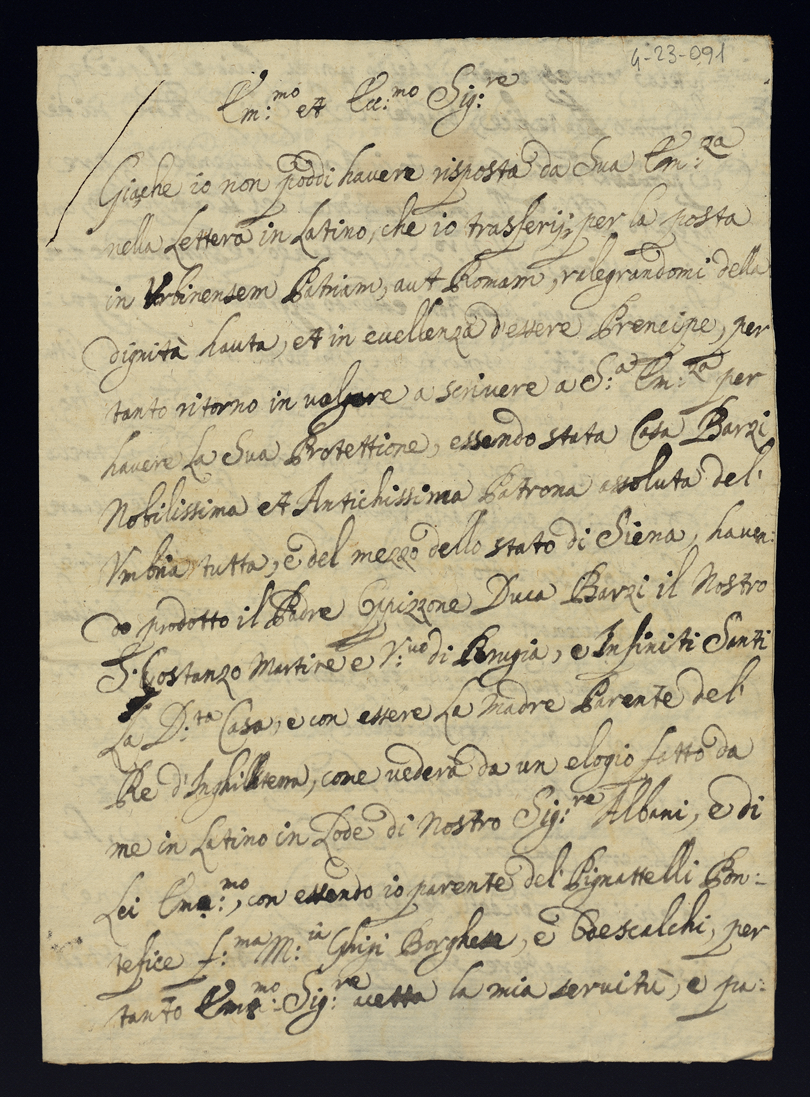 4-23-091
Em:mo et Ecc:mo Sig:re
Giache io non poddi havere risposta da Sua Em:za
nella Lettera in Latino, che io trasferij per la posta
in Urbinensem Patriam, aut Romam, ralegrandomi della
dignità hauta, et in eccellenza d'essere Prencipe, per
tanto ritorno in volgare a scrivere a S:a Em:za per
havere la Sua Protettione, essendo stata Casa Barzi
Nobilissima et Antichissima Patrona assoluta del'
Umbria tutta, e del mezzo dello stato di Siena, haven:
do prodotto il Padre Duca Barzi il Nostro
S. Costanzo Martire e V:vo di Perugia, e Infiniti Santi
La D:ta Casa, e con essere La Madre Parente del'
Re d'Inghilterra, come vederà da un elogio fatto da
me in Latino in Lode di Nostro Sig:re Albani, e di
Lei Em:mo, con essendo io parente del' Pignattelli Pon:
tefice f:ma M:ia Ghigi Borghese, e Odescalchi, per
tanto Em:mo Sig:re acetta la mia servitù, e pa: